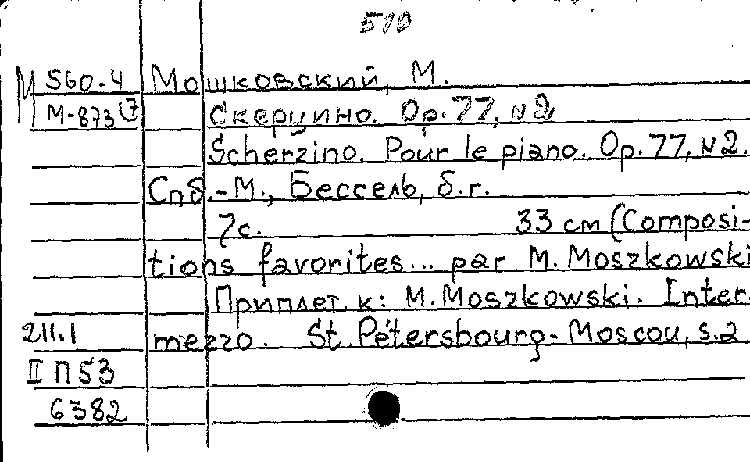 510
М 560.4 Мошковский, М.
М-873 (7 Скерцино. Op. 77, N 2
Scherzino. Pour le piano. Op. 77, N 2.
Спб.-М., Бессель, б.г.
7с. 33 см (Composi-
tions favorites... par M. Moszkowski
Приплет. к: M. Moszkowski. Inter-
211.1 mezzo. St. Pétersbourg-Moscou, s.a
II П 53
6382